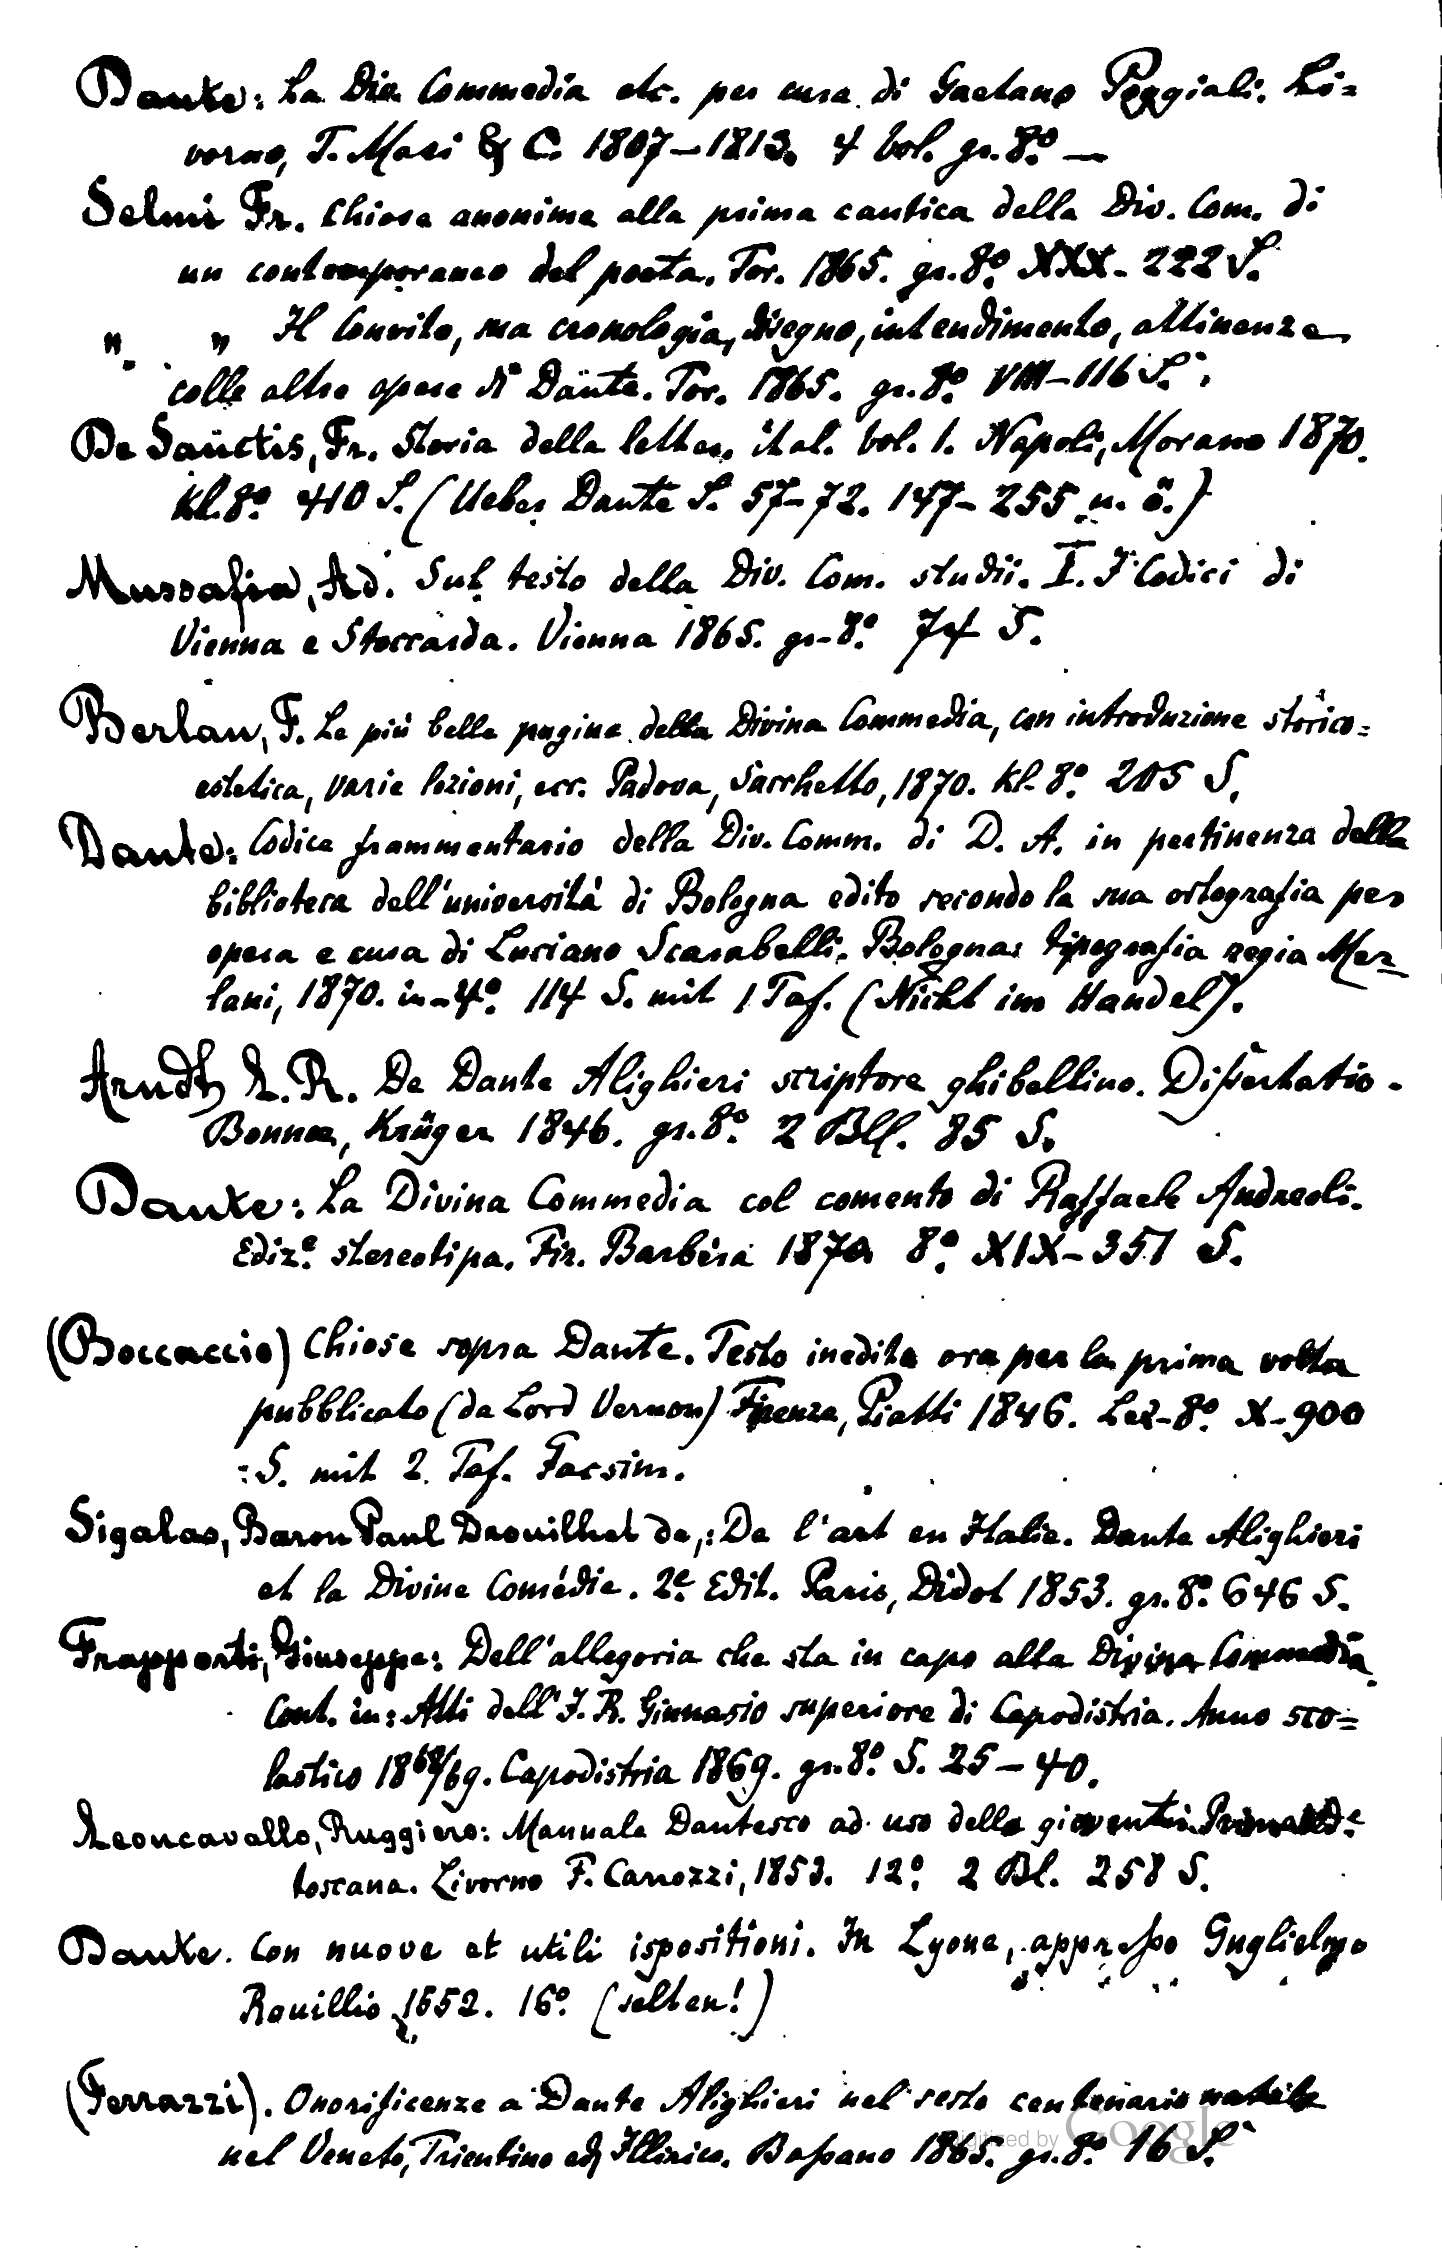 Dante: La Div. Commedia etc. per cura di Gaetano Poggiali. Li=
vorno, T. Masi & C. 1807–1813. 4 vol. gr. 8.º —
Selmi Fr. Chiose anonime alla prima cantica della Div. Com. di
un contemporaneo del poeta. Tor. 1865. gr. 8.º XXX–222 S.
" " Il Convito, sua cronologia, disegno, intendimento, attinenze
colle altre opere di Dante. Tor. 1865. gr. 8.º VIII–116 S.
De Sanctis, Fr. Storia della letter. ital. vol. 1. Napoli, Morano 1870.
kl. 8.º 410 S. (Ueber Dante S. 57–72. 147–255 u. ö.)
Mussafia, Ad. Sul testo della Div. Com. studii. I. I Codici di
Vienna e Stoccarda. Vienna 1865. gr–8.º 74 S.
Berlan, F. Le più belle pagine della Divina Commedia, con introduzione storico=
estetica, varie lezioni, ecc. Padova, Sacchetto, 1870. kl–8.º 205 S.
Dante: Codice frammentario della Div. Comm. di D. A. in pertinenza della
biblioteca dell'università di Bologna edito secondo la sua ortografia per
opera e cura di Luciano Scarabelli. Bologna: tipografia regia Mer–
lani, 1870. in–4.º 114 S. mit 1 Taf. (Nicht im Handel).
Arndt, L. R. De Dante Alighieri scriptore ghibellino. Dissertatio–
Bonnae, Krüger 1846. gr. 8.º 2 Bll. 85 S.
Dante: La Divina Commedia col comento di Raffaele Andreoli.
Ediz.e stereotipa. Fir. Barbèra 1870 8.º XIX–351 S.
(Boccaccio) Chiose sopra Dante. Testo inedito ora per la prima volta
pubblicato (da Lord Vernon) Firenze, Piatti 1846. Lex–8.º X–900
S. mit 2. Taf. Facsim.
Sigalas, Baron Paul Drouilhet de,: De l'art en Italie. Dante Alighieri
et la Divine Comédie. 2.e Edit. Paris, Didot 1853. gr. 8.º 646 S.
Frapporti, Giuseppe: Dell'allegoria che sta in capo alla Divina Commedia
Cont. in: Atti dell'I. R. Ginnasio superiore di Capodistria. Anno sco=
lastico 1868/69. Capodistria 1869. gr. 8.º S. 25–40.
Leoncavallo, Ruggiero: Manuale Dantesco ad uso della gioventù. Prima ed.e
toscana. Livorno F. Canozzi, 1853. 12.º 2 Bl. 258 S.
Dante. Con nuove et utili ispositioni. In Lyone, appresso Guglielmo
Rouillio 1552. 16.º (selten!)
(Ferrazzi). Onorificenze a Dante Alighieri nel sesto centenario natale
nel Veneto, Trientino ed Illirico. Bassano 1865. gr. 8.º 16 S.
Digitized by Google